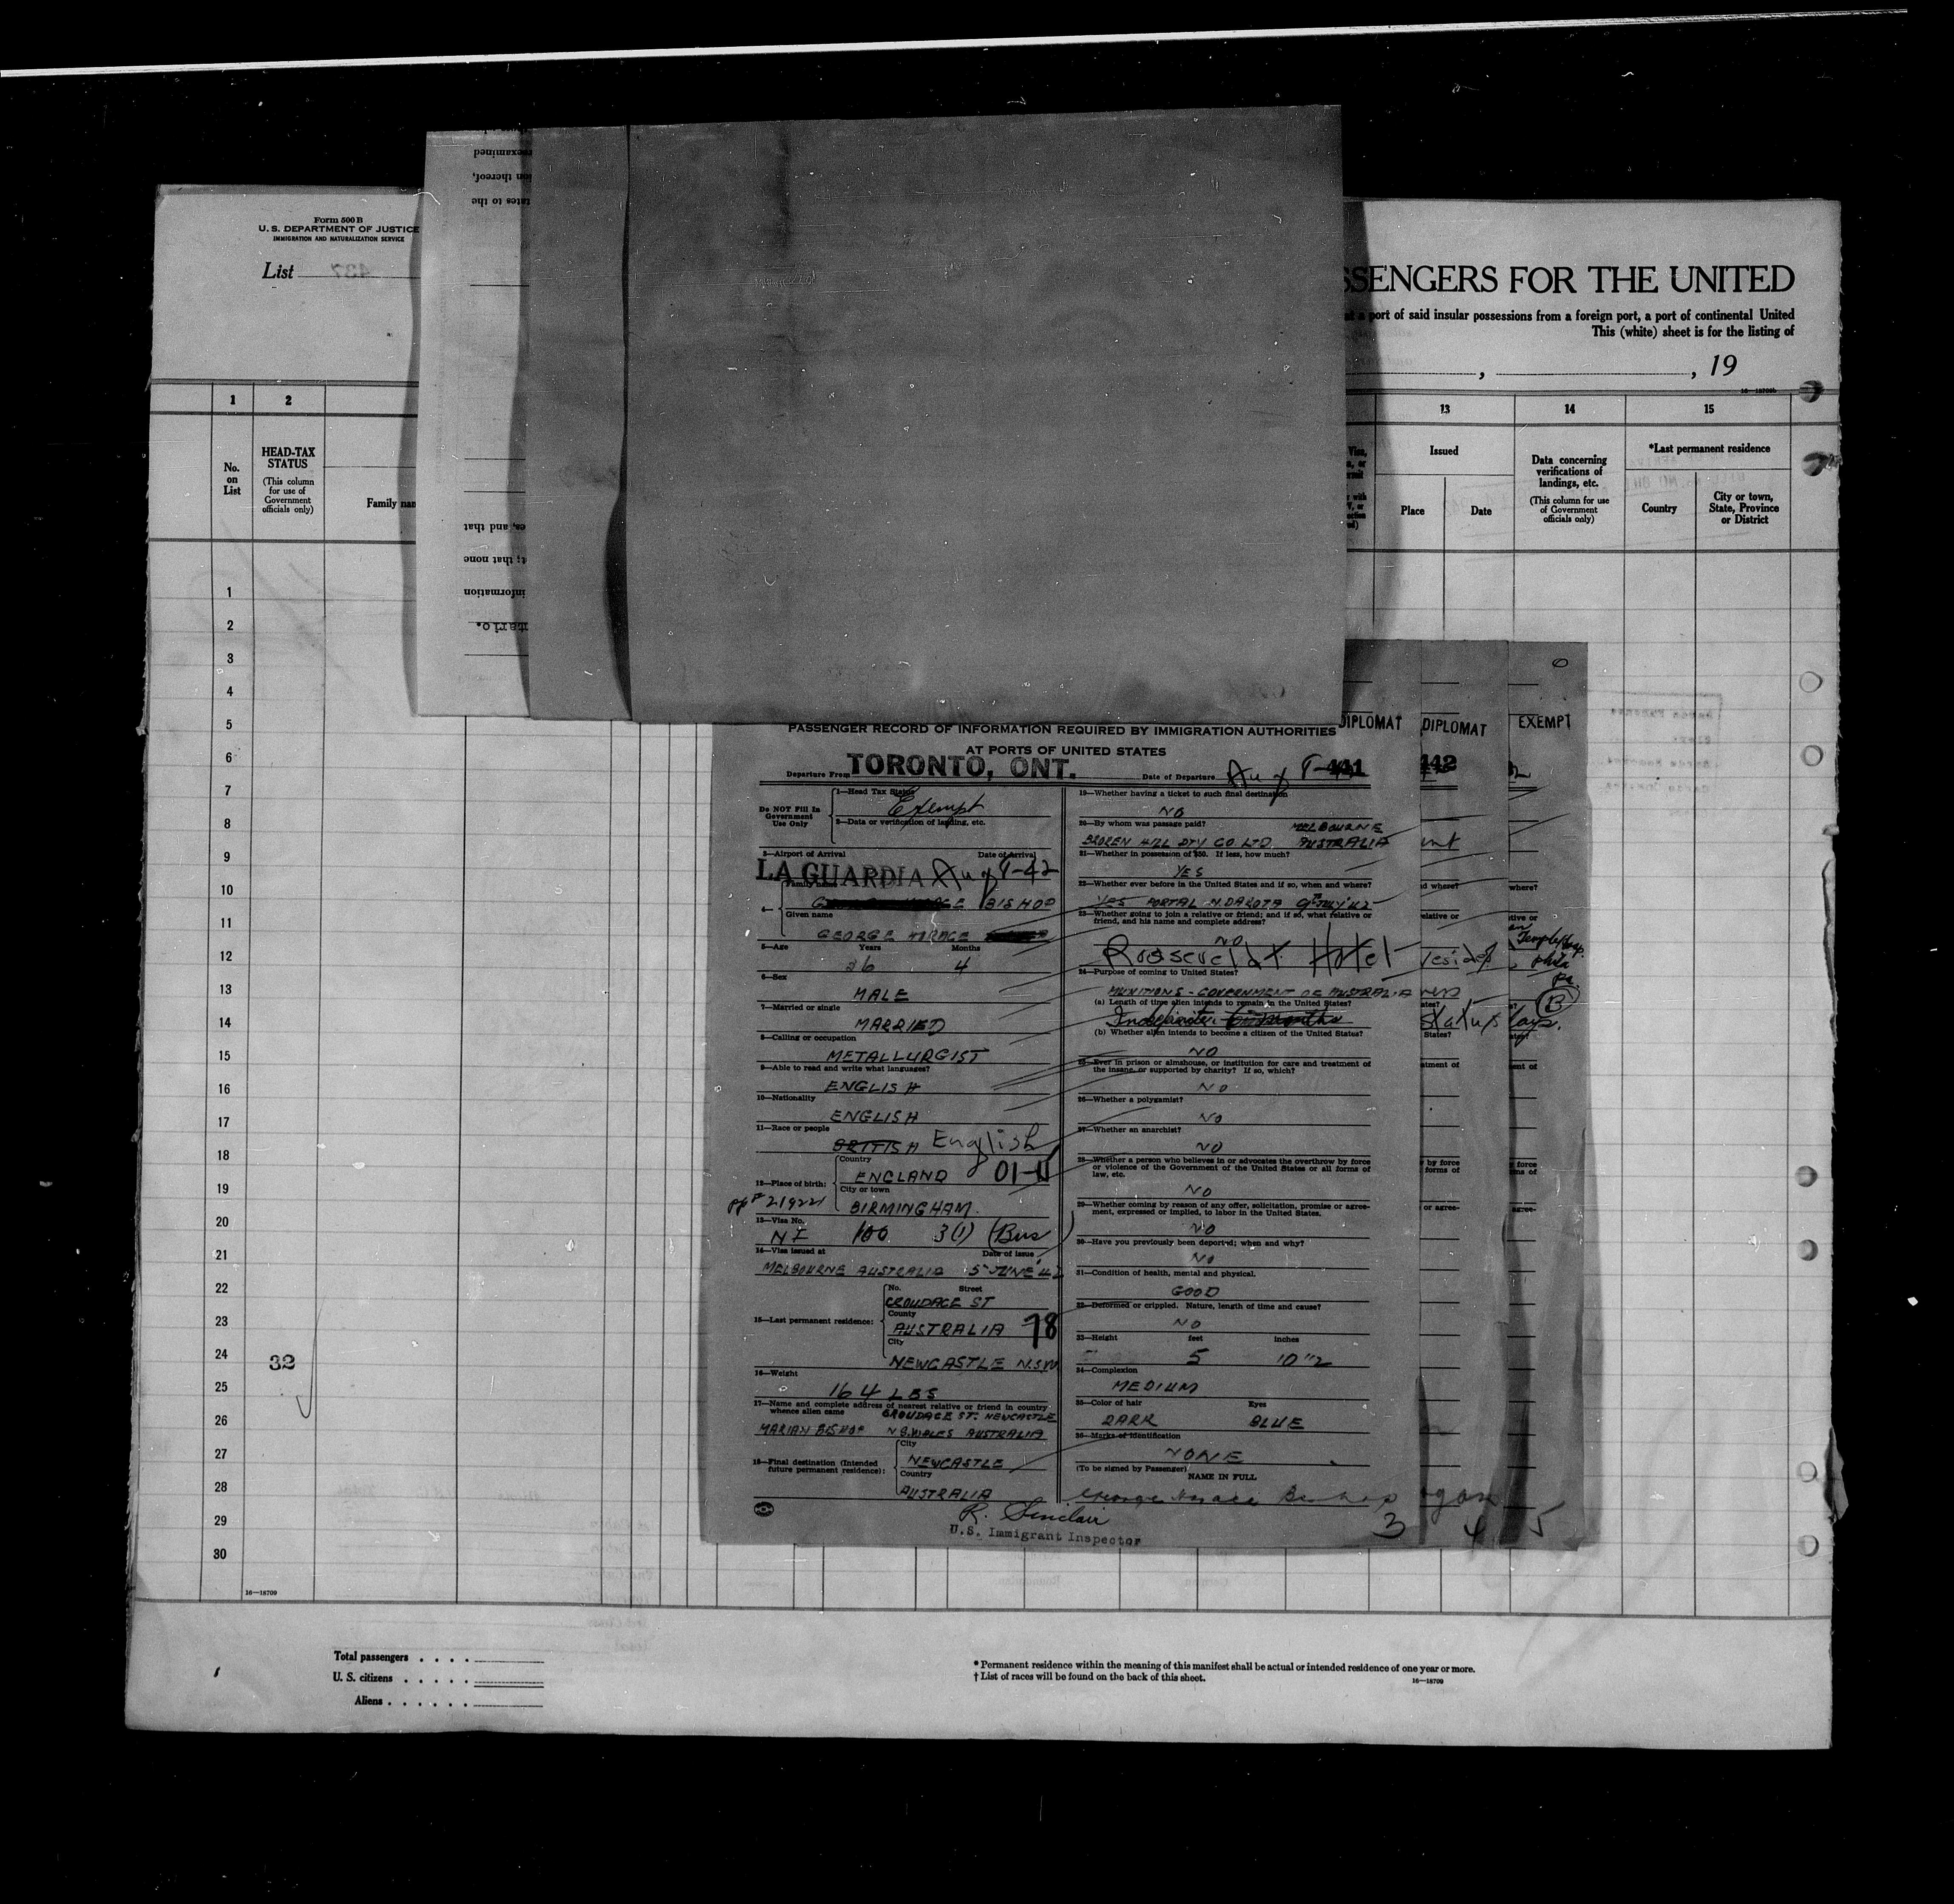 Form 500 B
U. S. DEPARTMENT OF JUSTICE
IMMIGRATION AND NATURALIZATION SERVICE
List
SSENGERS FOR THE UNITED
port of said insular possessions from a foreign port, a port of continental United
This (white) sheet is for the listing of
, , 19
16—18709
1 2 13 14 15
No. on List
HEAD-TAX STATUS
(This column for use of Government officials only)
Family nam
Issued
Place
Date
Data concerning verifications of landings, etc.
(This column for use of Government officials only)
*Last permanent residence
Country
City or town, State, Province or District
reexamined
ion thereof,
tates to the
es, and that
t; that none
information
ntario.
1
2
3
4
5
6
7
8
9
10
11
12
13
14
15
16
17
18
19
20
21
22
23
24
25
26
27
28
29
30
32
16—18709
DIPLOMAT DIPLOMAT EXEMPT
PASSENGER RECORD OF INFORMATION REQUIRED BY IMMIGRATION AUTHORITIES
AT PORTS OF UNITED STATES
Departure From TORONTO, ONT. Date of Departure Aug 9- 441 442
Do NOT Fill In Government Use Only
1—Head Tax Status
Exempt
2—Data or verification of landing, etc.
3—Airport of Arrival Date of Arrival
LA GUARDIA Aug 9-42
4— Family name
BISHOP
Given name
GEORGE HORACE
5—Age Years Months
36 4
6—Sex
MALE
7—Married or single
MARRIED
8—Calling or occupation
METALLURGIST
9—Able to read and write what languages?
ENGLISH
10—Nationality
ENGLISH
11—Race or people
BRITISH English
12—Place of birth:
Country
ENGLAND 01-U
City or town
BIRMINGHAM.
ppt# 219221
13—Visa No.
NI 100 3(1) (Bus)
14—Visa issued at Date of issue
MELBOURNE AUSTRALIA 5th JUNE '42
15—Last permanent residence:
No. Street
CROUDACE ST
County
AUSTRALIA 78
City
NEWCASTLE N.S.W
16—Weight
164 LBS
17—Name and complete address of nearest relative or friend in country whence alien came
CROUDACE ST. NEWCASTLE
MARIAN BISHOP N S.WALES AUSTRALIA
18—Final destination (Intended future permanent residence):
City
NEWCASTLE
Country
AUSTRALIA
19—Whether having a ticket to such final destination
NO
20—By whom was passage paid?
MELBOURNE
BROKEN HILL PTY CO LTD AUSTRALIA
21—Whether in possession of $50. If less, how much?
YES
22—Whether ever before in the United States and if so, when and where?
YES PORTAL N.DAKOTA 9th JULY 42
23—Whether going to join a relative or friend; and if so, what relative or friend, and his name and complete address?
NO
Roosevelt Hotel
24—Purpose of coming to United States?
MUNITIONS - GOVERNMENT OF AUSTRALIA
(a) Length of time alien intends to remain in the United States?
Indefinite. 6 months
(b) Whether alien intends to become a citizen of the United States?
NO
25—Ever in prison or almshouse, or institution for care and treatment of the insane, or supported by charity? If so, which?
NO
26—Whether a polygamist?
NO
27—Whether an anarchist?
NO
28—Whether a person who believes in or advocates the overthrow by force or violence of the Government of the United States or all forms of law, etc.
NO
29—Whether coming by reason of any offer, solicitation, promise or agreement, expressed or implied, to labor in the United States.
NO
30—Have you previously been deported; when and why?
NO
31—Condition of health, mental and physical.
GOOD
32—Deformed or crippled. Nature, length of time and cause?
NO
33—Height feet inches
5 10 1/2
34—Complexion
MEDIUM
35—Color of hair Eyes
DARK BLUE
36—Marks of identification
NONE
(To be signed by Passenger)
NAME IN FULL
George Horace Bishop
3 4 5
R. Sinclair
U.S. Immigrant Inspector
status
days.
Phila
Pa.
B
Total passengers
U. S. citizens
Aliens
* Permanent residence within the meaning of this manifest shall be actual or intended residence of one year or more.
† List of races will be found on the back of this sheet.
16—18709